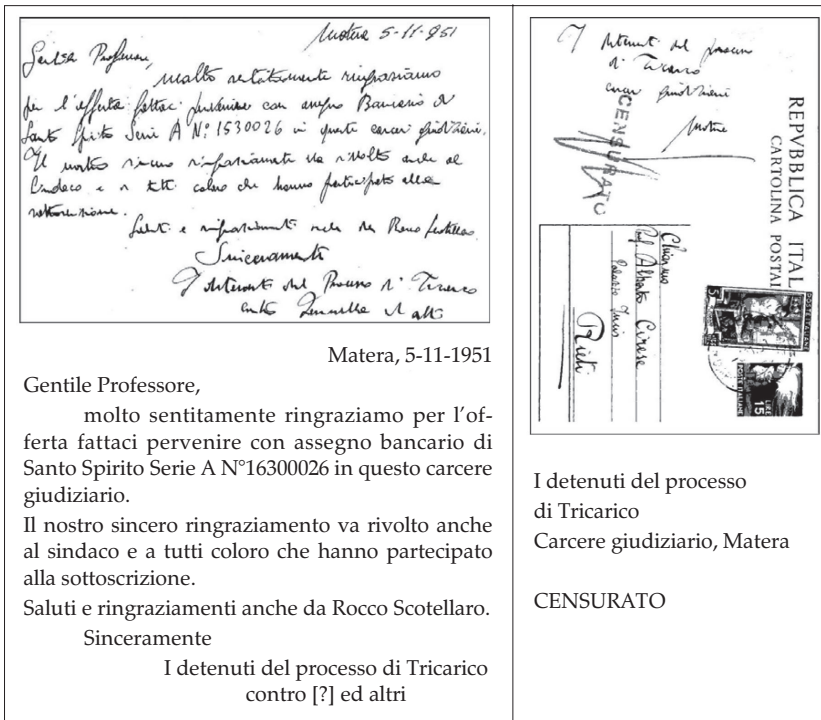 Matera 5-11-951
Gentile Professore,
molto sentitamente ringraziamo
per l'offerta fattaci pervenire con assegno Bancario di
Santo Spirito Serie A N° 1530026 in questo carcere giudiziario.
Il nostro sincero ringraziamento va rivolto anche al
Sindaco e a tutti coloro che hanno partecipato alla
sottoscrizione.
Saluti e ringraziamenti anche da Rocco Scotellaro.
Sinceramente
I detenuti del Processo di Tricarico
contro
Matera, 5-11-1951
Gentile Professore,
molto sentitamente ringraziamo per l'of-
ferta fattaci pervenire con assegno bancario di
Santo Spirito Serie A N°16300026 in questo carcere
giudiziario.
Il nostro sincero ringraziamento va rivolto anche
al sindaco e a tutti coloro che hanno partecipato
alla sottoscrizione.
Saluti e ringraziamenti anche da Rocco Scotellaro.
Sinceramente
I detenuti del processo di Tricarico
contro [?] ed altri
I detenuti del processo
di Tricarico
carcere giudiziario
Matera
CENSURATO
REPVBBLICA ITAL
CARTOLINA POSTAL
Prof. Alberto Cirese
Rieti
POSTE ITALIANE
5
POSTE ITALIANE
LIRE 15
I detenuti del processo
di Tricarico
Carcere giudiziario, Matera
CENSURATO